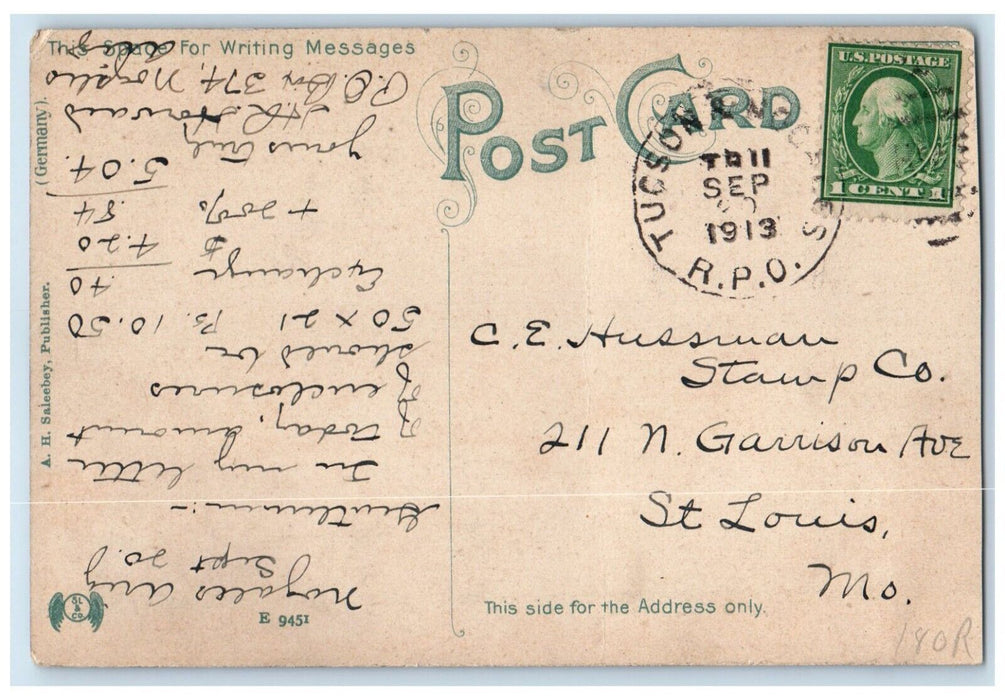 This Space For Writing Messages
POST CARD
U.S. POSTAGE
1 CENT 1
TUCSON
TR 11
SEP
20
1913
R.P.O.
C. E. Hussman
Stamp Co.
211 N. Garrison Ave
St Louis,
Mo.
This side for the Address only.
180R
Nogales Ariz
Sept 20.
Gentlemen:-
In my letter
of today, amount
of enclosures
should be
50 x 21 Ps. 10.50
40
Exchange $ 4.20
+ 20% .84
5.04.
Yours truly
H.R. Howard
P.O. Box 374, Nogales
Ariz
(Germany).
A. H. Saleebey, Publisher.
SL
&
CO.
E 9451